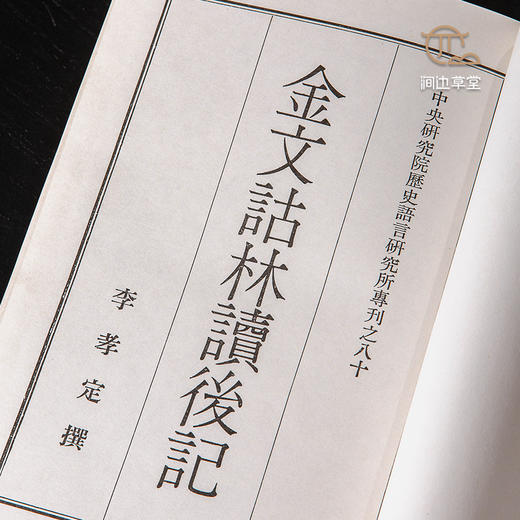 中央研究院歷史語言研究所專刊之八十
金文詁林讀後記
李孝定撰
涧边草堂